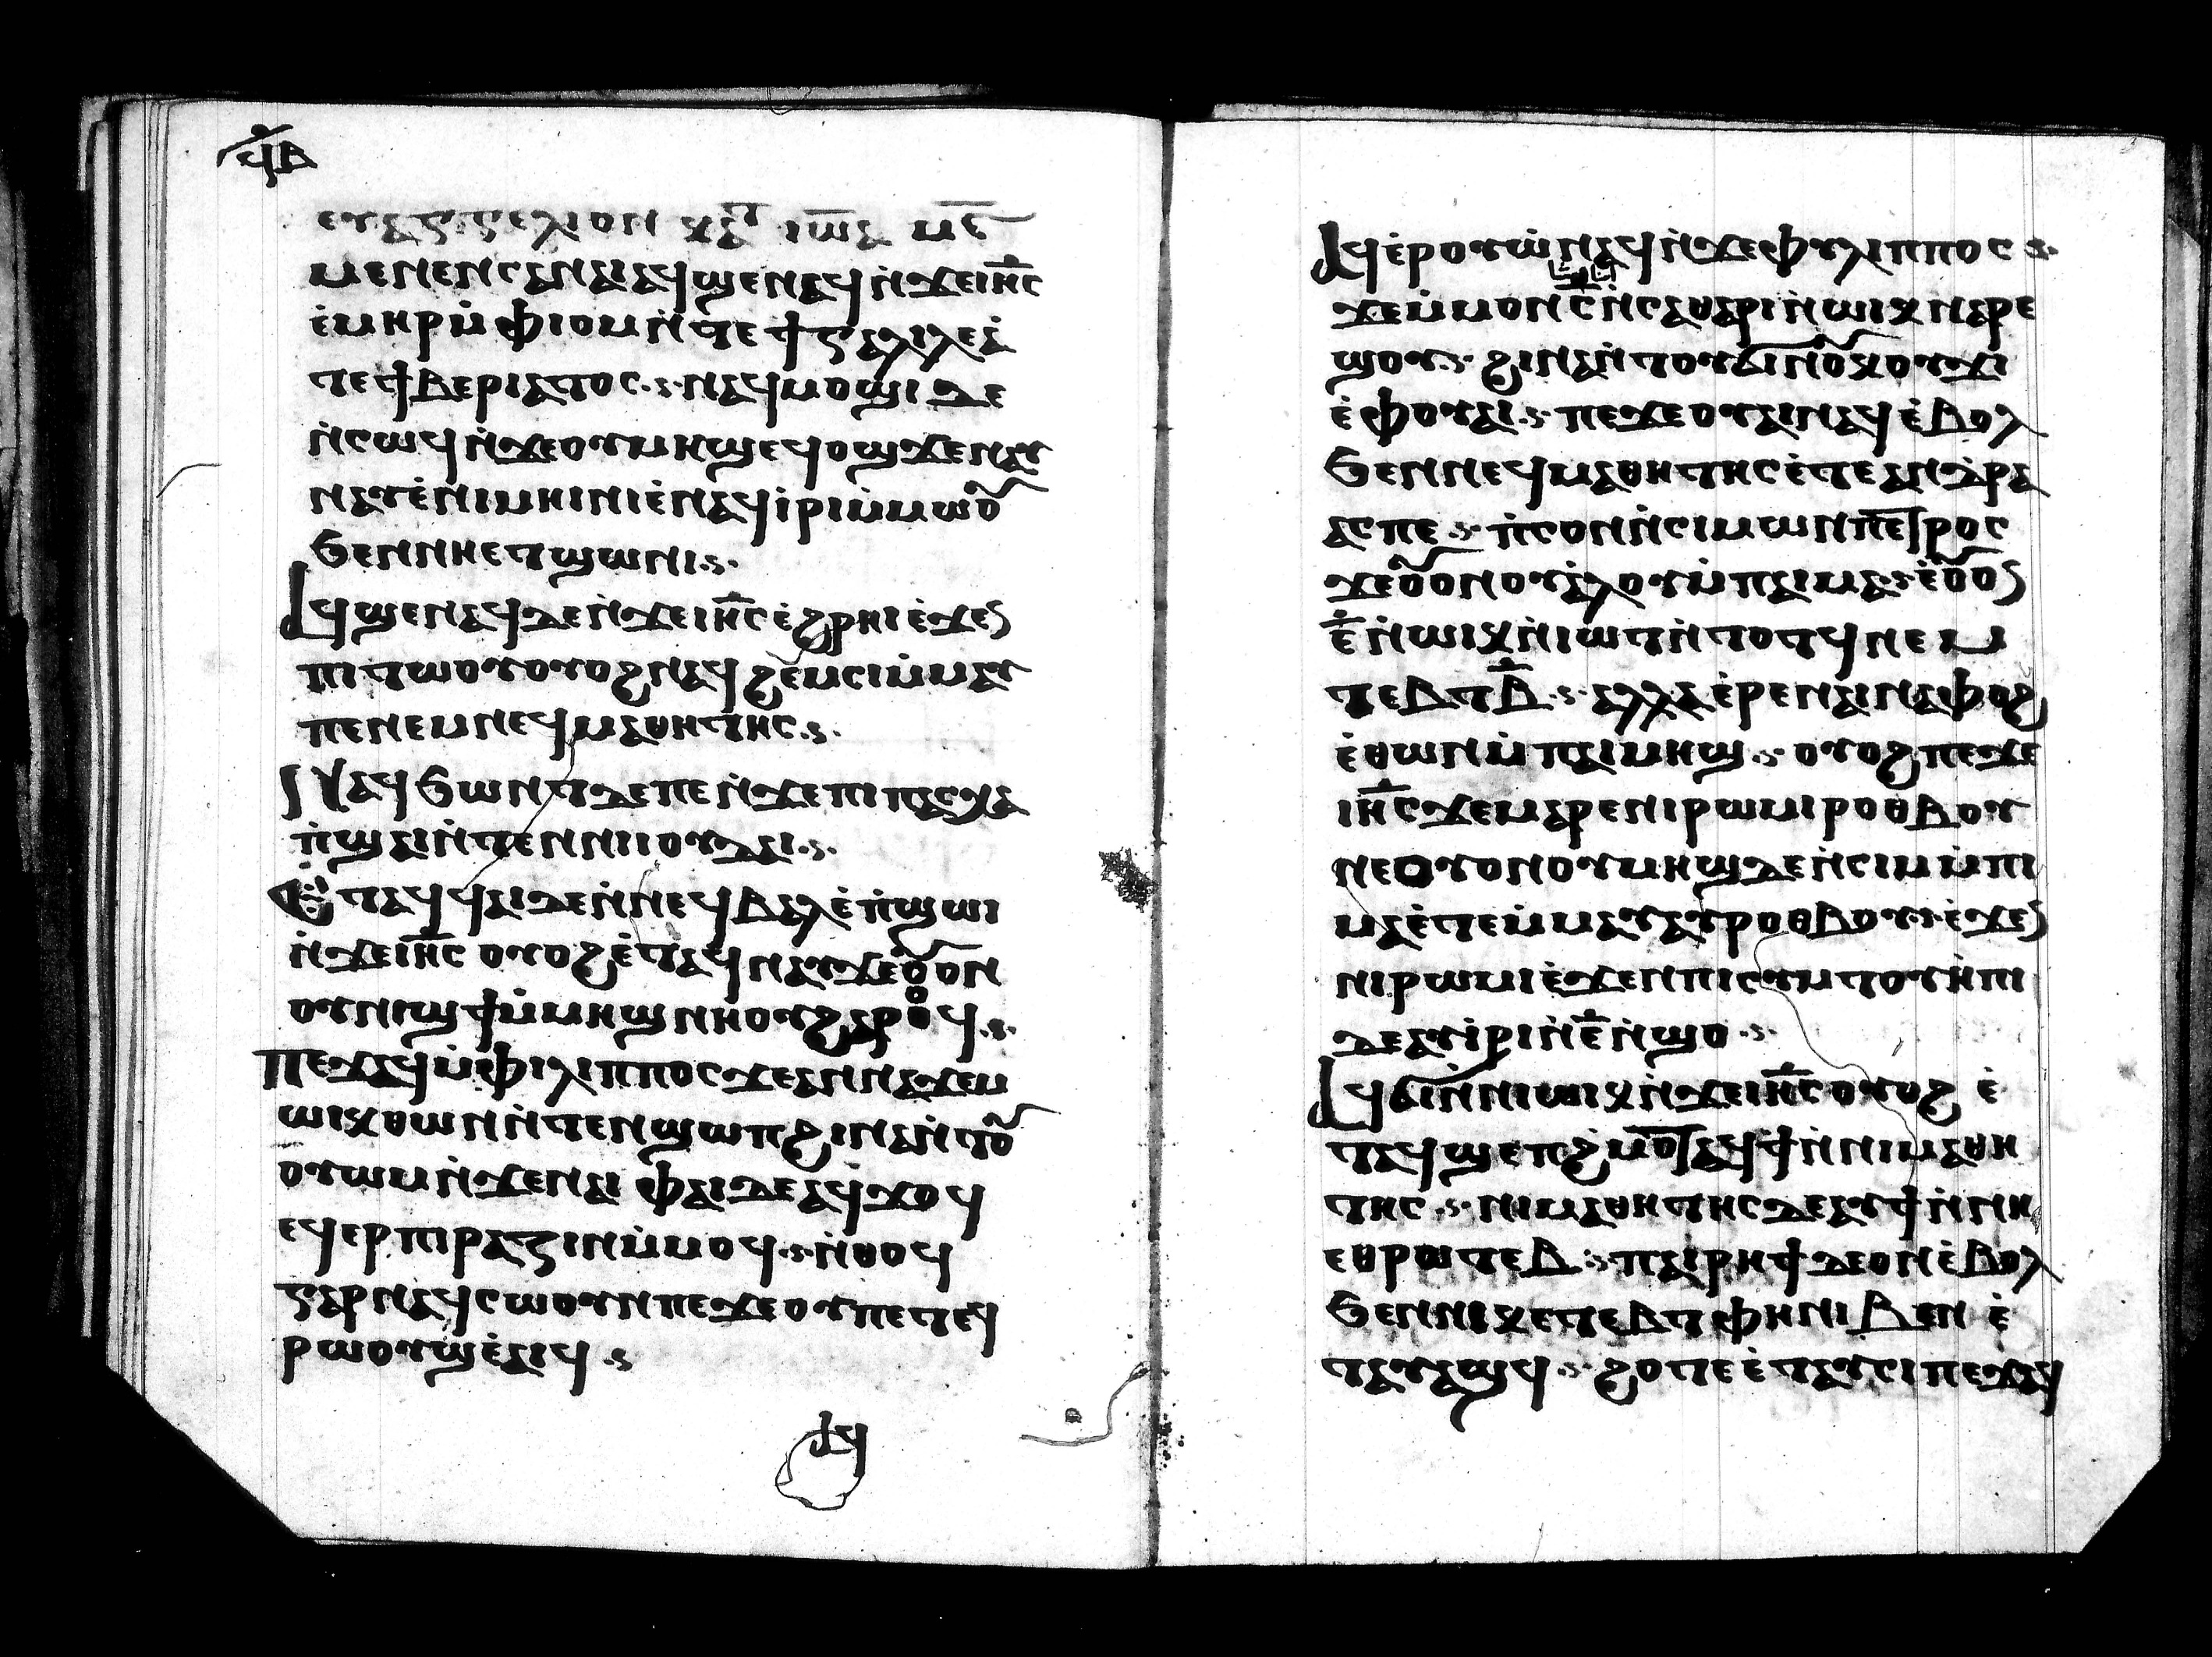 ϥⲃ
ⲉⲩⲁⲅⲅⲉⲗⲓⲟⲛ ⲕⲁⲧ ⲓⲱⲁ
ⲙⲉⲛⲉⲛⲥⲁⲛⲁⲓⲁϥϣⲉⲛⲁϥⲛ̀ϫⲉⲓⲏ̅ⲥ
ⲉ̀ⲙⲏⲣⲙ̀ⲫⲓⲟⲙⲛ̀ⲧⲉϯⲅⲁⲗⲓⲗⲉⲁ̀
ⲧⲉϯⲃⲉⲣⲓⲁⲧⲟⲥ·ⲋ·ⲛⲁϥⲙⲟϣⲓ ⲇⲉ
ⲛ̀ⲥⲱϥⲛ̀ϫⲉⲟⲩⲙⲏϣⲉϥⲟϣϫⲉⲛⲁⲩ
ⲛⲁⲩⲉ̀ⲛⲓⲙⲏⲓⲛⲓⲉ̀ⲛⲁϥⲓ̀ⲣⲓⲙ̀ⲙⲱⲟⲩ
ϧⲉⲛⲛⲏⲉⲧϣⲱⲛⲓ·ⲋ·
ⲁϥϣⲉⲛⲁϥⲇⲉⲛ̀ϫⲉⲓⲏ̅ⲥⲉ̀ϩⲣⲏⲓⲉ̀ϫⲉⲛ
ⲡⲓⲧⲱⲟⲩⲟⲩⲟϩⲛⲁϥϩⲉⲙⲥⲓⲙ̀ⲙⲁⲩ
ⲡⲉⲛⲉⲙⲛⲉϥⲙⲁⲑⲏⲧⲏⲥ·ⲋ·
ⲛⲁϥϧⲱⲛⲧⲇⲉⲡⲉⲛ̀ϫⲉⲡⲓⲡⲁⲥⲭⲁ
ⲡ̀ϣⲁⲓⲛ̀ⲧⲉⲛⲛⲓⲓⲟⲩⲇⲁⲓ·ⲋ·
ⲉ̀ⲧⲁϥϥⲁⲓⲇⲉⲛ̀ⲛⲉϥⲃⲁⲗⲉ̀ⲡ̀ϣⲱⲓ
ⲛ̀ϫⲉⲓⲏ̅ⲥ ⲟⲩⲟϩⲉ̀ⲧⲁϥⲛⲁⲩϫⲉⲟⲩⲟⲛ
ⲟⲩⲛⲓϣϯⲙ̀ⲙⲏϣⲛⲏⲟⲩϩⲁⲣⲟϥ·ⲋ·
ⲡⲉϫⲁϥⲙ̀ⲫⲓⲗⲓⲡⲡⲟⲥϫⲉⲁⲛⲛⲁϫⲉⲙ
ⲱⲓⲕⲑⲱⲛⲛ̀ⲧⲉⲛϣⲱⲡϩⲓⲛⲁⲛ̀ⲧⲟⲩ
ⲟⲩⲱⲙⲛ̀ϫⲉⲛⲁⲓ ⲫⲁⲓⲇⲉⲁϥϫⲟϥ
ⲉϥⲉⲣⲡⲓⲣⲁⲍⲓⲛⲙ̀ⲙⲟϥ·ⲋ·ⲛ̀ⲑⲟϥ
ⲅⲁⲣⲛⲁϥⲥⲱⲟⲩⲛⲡⲉϫⲉⲟⲩⲡⲉⲧⲉϥ
ⲣⲱⲟⲩϣⲉ̀ⲁⲓϥ·ⲋ
ⲁϥ
ⲁϥⲉ̀ⲣⲟⲩⲱ̀ⲛⲁϥⲛ̀ϫⲉⲫⲩⲗⲓⲡⲡⲟⲥ·ⲋ·
ϫⲉⲙ̀ⲙⲟⲛⲥ̅ⲛ̀ⲥⲁⲑⲉⲣⲓⲛ̀ⲱⲓⲕⲛⲁⲣⲉ
ϣⲟⲩ·ⲋ·ϩⲓⲛⲁⲛ̀ⲧⲟⲩϭⲓⲛⲟⲩⲕⲟⲩϫⲓ
ⲉ̀ⲫⲟⲩⲁⲓ·ⲋ·ⲡⲉϫⲉⲟⲩⲁⲓⲛⲁϥⲉ̀ⲃⲟⲗ
ϧⲉⲛⲛⲉϥⲙⲁⲑⲏⲧⲏⲥⲉ̀ⲧⲉⲁⲛⲇ̀ⲣⲉ
ⲁⲥⲡⲉ·ⲋ·ⲡ̀ⲥⲟⲛⲛ̀ⲥⲓⲙⲱⲛⲡⲉⲧⲣⲟⲥ
ϫⲉⲟⲩⲟⲛⲟⲩⲁ̀ⲗⲟⲩⲙ̀ⲡⲁⲓⲙⲁ·ⲋ·ⲉ̀ⲟⲩⲟⲛ
ⲉ̅ⲛ̀ⲱⲓⲕⲛ̀ⲓⲱⲧⲛ̀ⲧⲟⲧϥⲛⲉⲙ
ⲧⲉⲃⲧⲃ̅·ⲋ·ⲁⲗⲗⲁⲉ̀ⲣⲉⲛⲁⲓⲛⲁⲫⲟϩ
ⲉ̀ⲑⲱⲛⲙ̀ⲡⲁⲓⲙⲏϣ·ⲋ·ⲟⲩⲟϩⲡⲉϫⲉ
ⲓⲏ̅ⲥϫⲉⲙⲁⲣⲉⲛⲓⲣⲱⲙⲓⲣⲟⲑⲃⲟⲩ
ⲛⲉⲟⲩⲟⲛⲟⲩⲙⲏϣⲇⲉⲛ̀ⲥⲓⲙⲙ̀ⲡⲓ
ⲙⲁⲉ̀ⲧⲉⲙ̀ⲙⲁⲩⲁⲩⲣⲟⲑⲃⲟⲩ·ⲋ·ⲉ̀ϫⲉⲛ
ⲛⲓⲣⲱⲙⲓⲉ̀ϫⲉⲛⲡⲓⲥⲩⲙⲧⲟⲩⲏ̀ⲡⲓ
ⲇⲉⲁⲩⲓ̀ⲣⲓⲛ̀ⲉ̅ⲛ̀ϣⲟ·ⲋ·
ⲁϥϭⲓⲛ̀ⲛⲓⲱⲓⲕⲛ̀ϫⲉⲓⲏ̅ⲥⲟⲩⲟϩ ⲉ̀
ⲧⲁϥϣⲉⲡϩ̀ⲙⲟⲧⲁϥϯⲛ̀ⲛⲓⲙⲁⲑⲏ
ⲧⲏⲥ·ⲋ·ⲛⲓⲙⲁⲑⲏⲧⲏⲥⲇⲉⲁⲩϯⲛ̀ⲛⲏ
ⲉⲑⲣⲱⲧⲉⲃ·ⲋ·ⲡⲁⲓⲣⲏϯⲇⲉⲟⲛⲉ̀ⲃⲟⲗ
ϧⲉⲛⲛⲓⲕⲉⲧⲉⲃⲧⲫⲏⲛⲓⲃⲉⲛ ⲉ̀
ⲧⲁⲩⲁϣϥ·ⲋ·ϩⲟⲧⲉⲉ̀ⲧⲁⲩⲥⲓⲡⲉϫⲁϥ